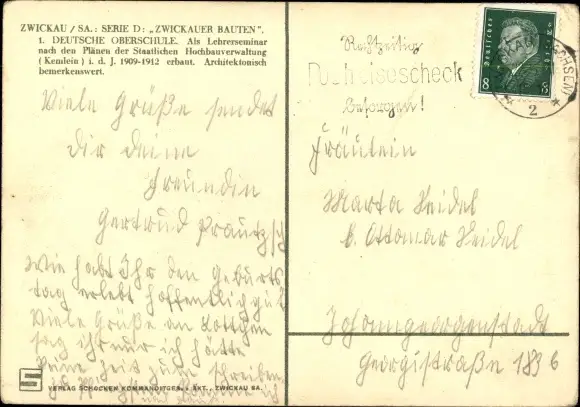 ZWICKAU / SA.: SERIE D: „ZWICKAUER BAUTEN".
1. DEUTSCHE OBERSCHULE. Als Lehrerseminar
nach den Plänen der Staatlichen Hochbauverwaltung
(Kemlein) i. d. J. 1909-1912 erbaut. Architektonisch
bemerkenswert.
Viele Grüße sendet
dir deine
Freundin
Gertrud
Wie habt Ihr den Geburts
tag erlebt hoffentlich gut
Viele Grüße an
sag ihr nur ich hätte
keine Zeit zum schreiben
VERLAG SCHOCKEN KOMMANDITGES. a. AKT., ZWICKAU SA.
Rechtzeitig
besorgen!
Deutsches Reich
8 8
2
Fräulein
Marta Heidel
b. Ottomar Heidel
Johanngeorgenstadt
Georgistraße 183 6